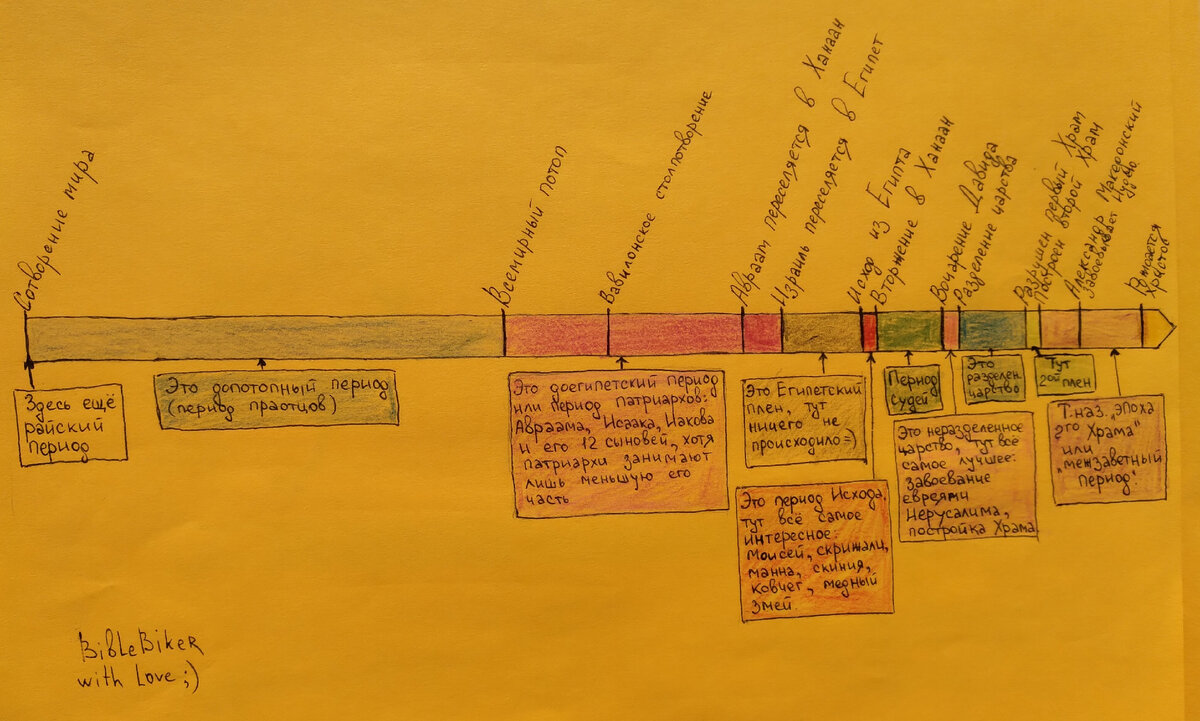 Сотворение мира
Всемирный потоп
Вавилонское столпотворение
Авраам переселяется в Ханаан
Израиль переселяется в Египет
Исход из Египта
Вторжение в Ханаан
Воцарение Давида
Разделение царства
Разрушен первый Храм
Построен второй Храм
Александр Македонский
завоевывает Иудею
Рождается
Христов
Здесь ещё
райский
период
Это допотопный период
(период праотцов)
Это доегипетский период
или период патриархов:
Авраама, Исаака, Иакова
и его 12 сыновей, хотя
патриархи занимают
лишь меньшую его
часть
Это Египетский
плен, тут
ничего не
происходило =)
Это период Исхода,
тут всё самое
интересное:
Моисей, скрижали,
манна, скиния,
ковчег, медный
змей.
Период
Судей
Это неразделенное
царство, тут всё
самое лучшее:
завоевание
евреями
Иерусалима,
постройка Храма
Это
разделен.
царство
Тут
2ой плен
Т.наз. "эпоха
2го Храма"
или
"межзаветный
период".
BibleBiker
with Love ;)